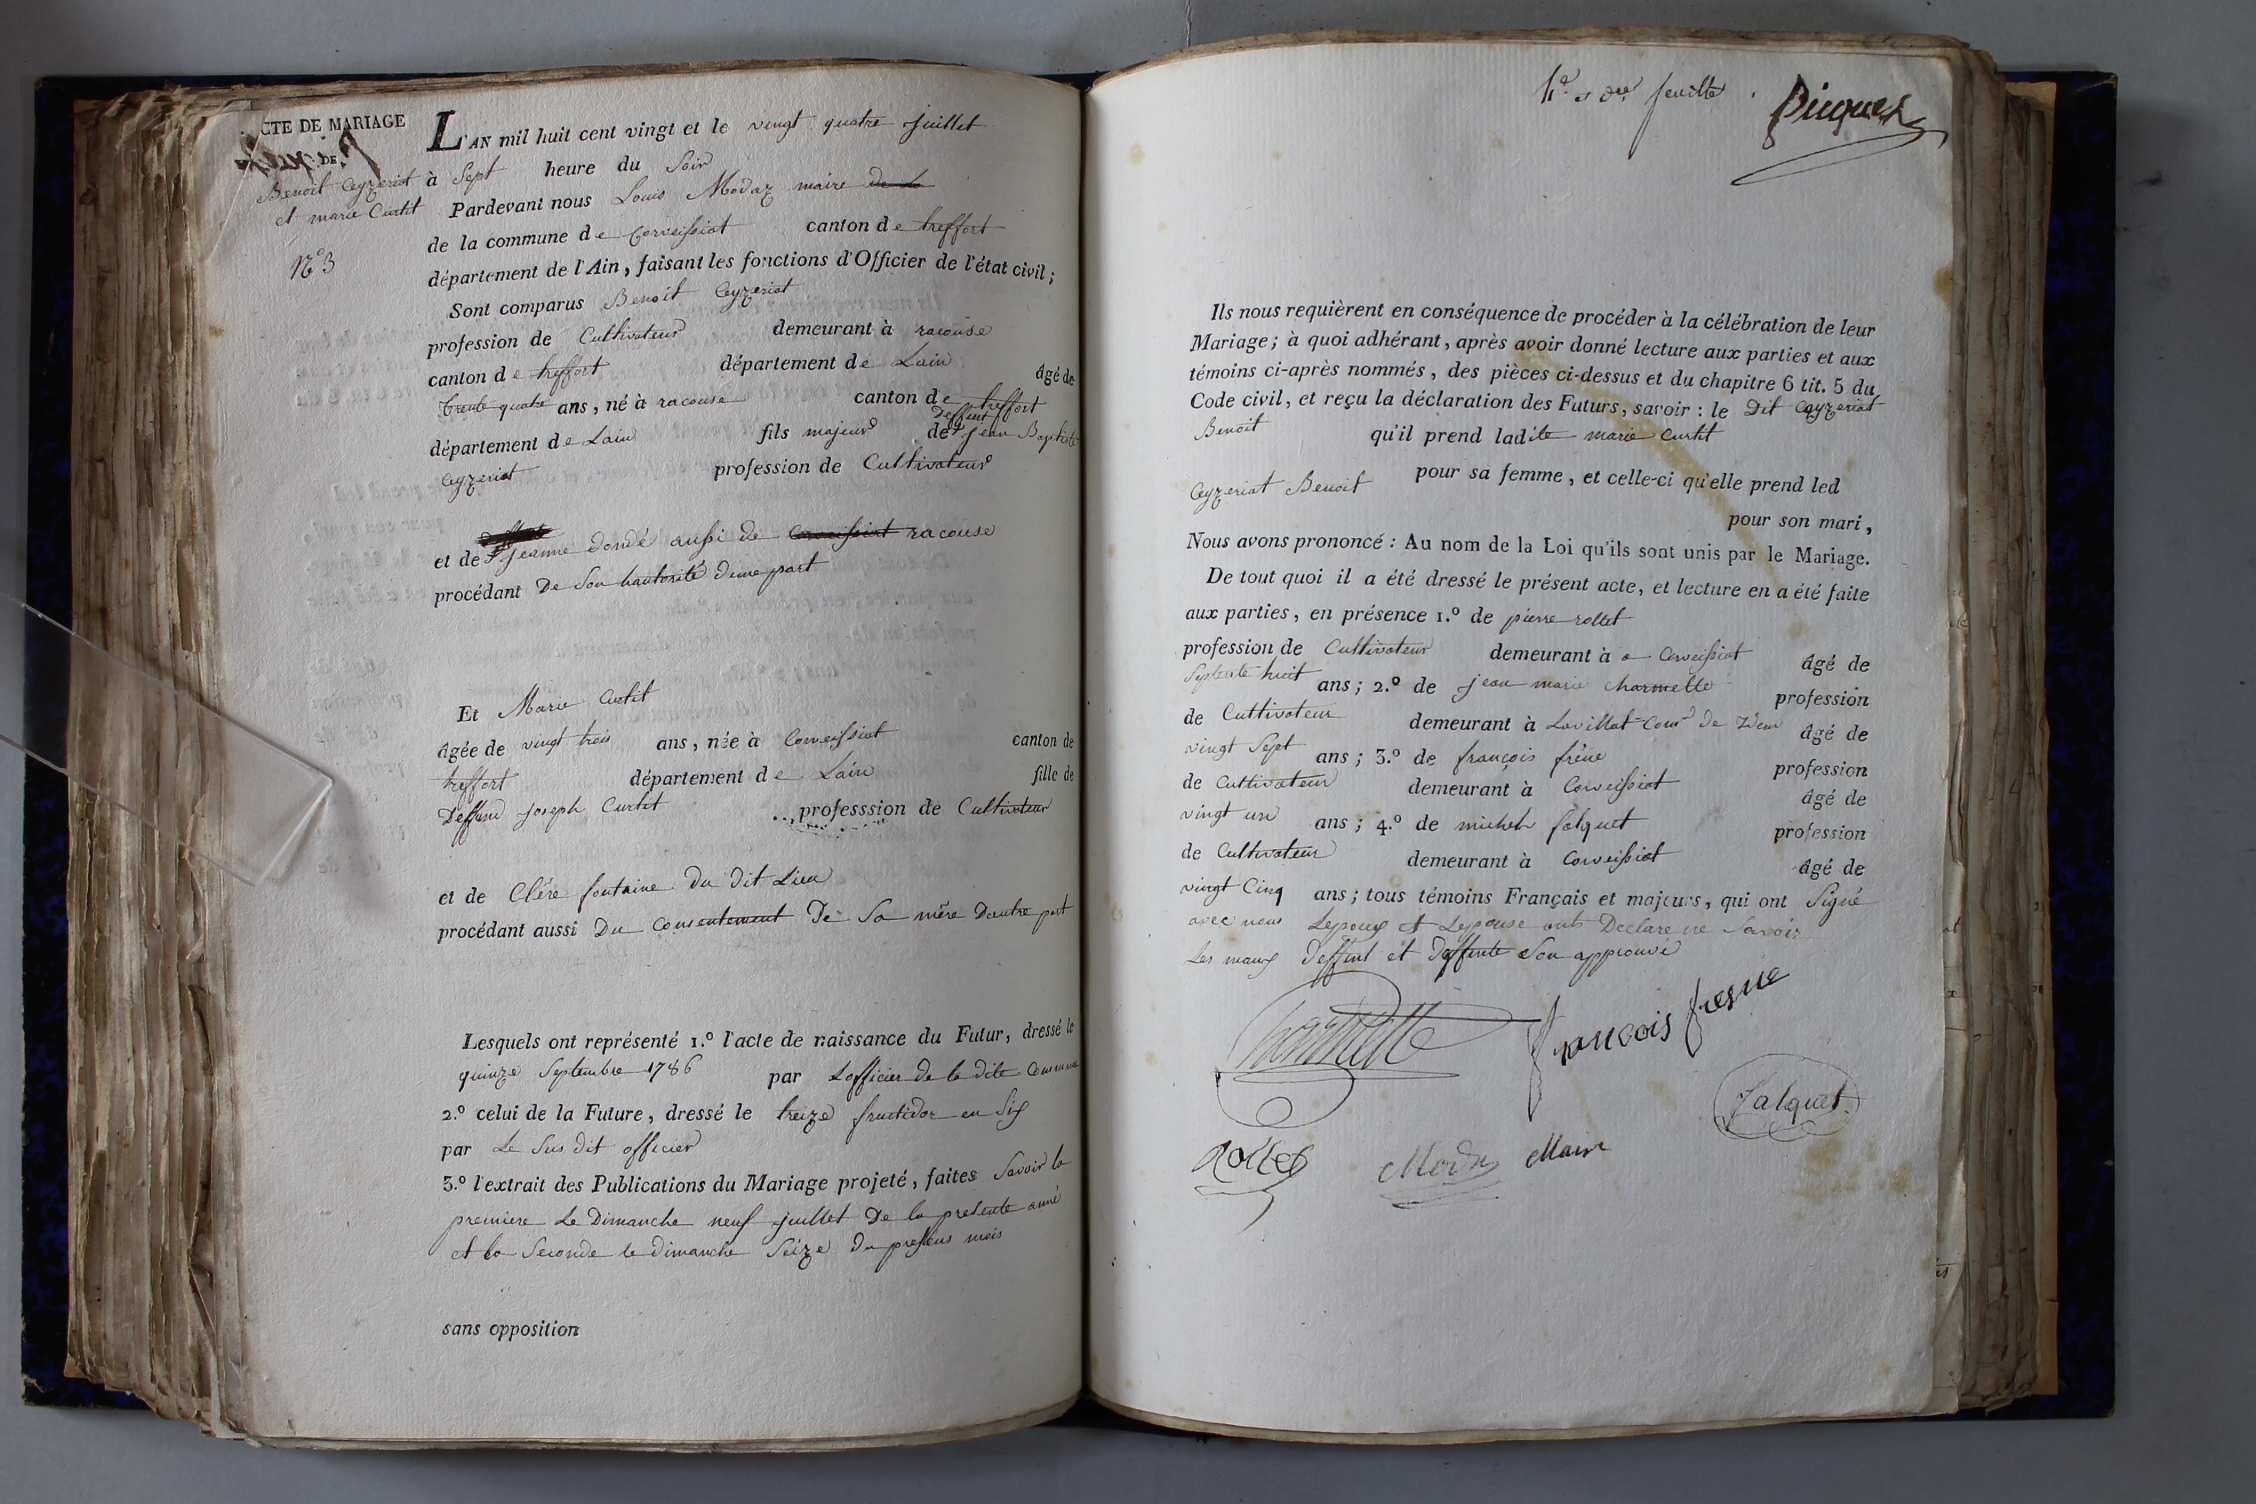 ACTE DE MARIAGE
DE
Benoit Ceyzeriat
et marie Curtit
N.º 3
L'AN mil huit cent vingt et le vingt quatre juillet
à Sept heure du Soir
Pardevant nous Louis Modaz maire de la
de la commune de Corveissiat canton de treffort
département de l'Ain, faisant les fonctions d'Officier de l'état civil;
Sont comparus Benoit Ceyzeriat
profession de Cultivateur demeurant à racouse
canton de treffort département de Lain âgé de
trente quatre ans, né à racouse canton de treffort
département de Lain fils majeur de deffunt jean Baptiste
Ceyzeriat profession de Cultivateur
et de jeanne dondé aussi de Corveissiat racouse
procédant De Son hautorité dune part
Et Marie Curtit
âgée de vingt trois ans, née à Corveissiat canton de
treffort département de Lain fille de
Deffund joseph Curtit professsion de Cultivateur
et de Clére fontaine du dit Lieu
procédant aussi Du Consentement De Sa mére Dautre part
Lesquels ont représenté 1.º l'acte de naissance du Futur, dressé le
quinze Septembre 1786 par Lofficier de la dite Commune
2.º celui de la Future, dressé le treize fructidor en Six
par Le Sus dit officier
3.º l'extrait des Publications du Mariage projeté, faites Savoir la
premiere Le Dimanche neuf juillet De la presente anné
et la Seconde le dimanche Seize du presens mois
sans opposition
feuille
Picquet
Ils nous requièrent en conséquence de procéder à la célébration de leur
Mariage; à quoi adhérant, après avoir donné lecture aux parties et aux
témoins ci-après nommés, des pièces ci-dessus et du chapitre 6 tit. 5 du
Code civil, et reçu la déclaration des Futurs, savoir: le Dit Ceyzeriat
Benoit qu'il prend ladite marie Curtit
pour sa femme, et celle-ci qu'elle prend led
Ceyzeriat Benoit pour son mari,
Nous avons prononcé: Au nom de la Loi qu'ils sont unis par le Mariage.
De tout quoi il a été dressé le présent acte, et lecture en a été faite
aux parties, en présence 1.º de pierre rollet
profession de Cultivateur demeurant à a Corveissiat âgé de
Septente huit ans; 2.º de jean marie charmette profession
de Cultivateur demeurant à Lavillat Com.e de âgé de
vingt Sept ans; 3.º de françois fréne profession
de Cultivateur demeurant à Corveissiat âgé de
vingt un ans; 4.º de michel falquet profession
de Cultivateur demeurant à Corveissiat âgé de
vingt Cinq ans; tous témoins Français et majeurs, qui ont Signé
avec nous Lepoux et Lepouse onts Declare ne Savoir
Les maux deffunt et deffunte Son approuvé
Charmette
francois fresne
falquet
Rollet
Modaz Maire